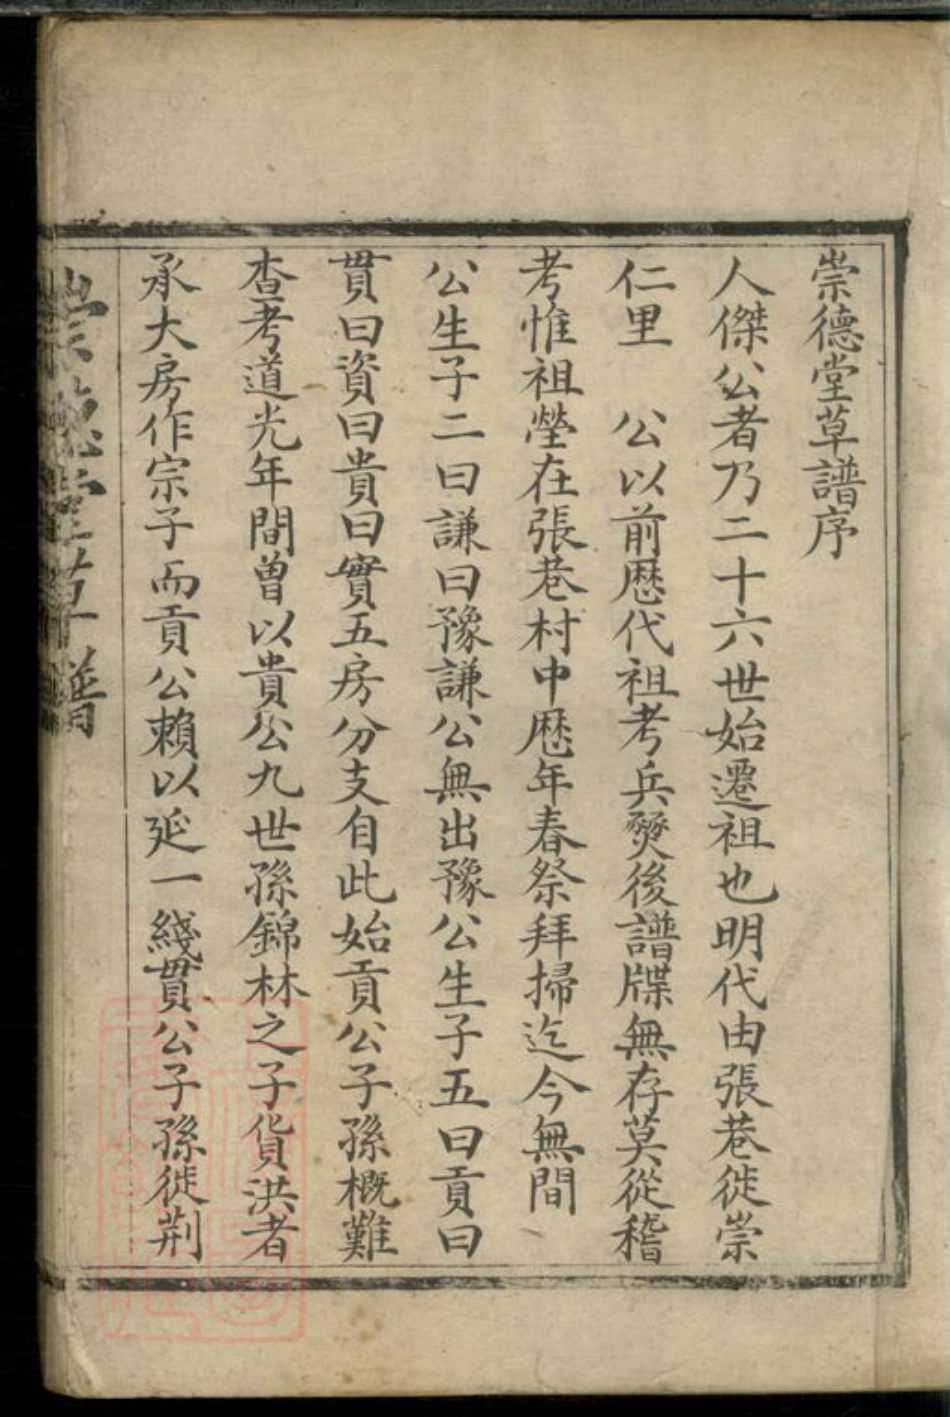 崇德堂草譜序
人傑公者乃二十六世始遷祖也明代由張巷徙崇
仁里　公以前歷代祖考兵燹後譜牒無存莫從稽
考惟祖塋在張巷村中歷年春祭拜掃迄今無間
公生子二曰謙曰豫謙公無出豫公生子五曰貢曰
貫曰資曰貴曰實五房分支自此始貢公子孫概難
查考道光年間曾以貴公九世孫錦林之子貨洪者
承大房作宗子而貢公賴以延一綫貫公子孫徙荆
崇德堂草譜